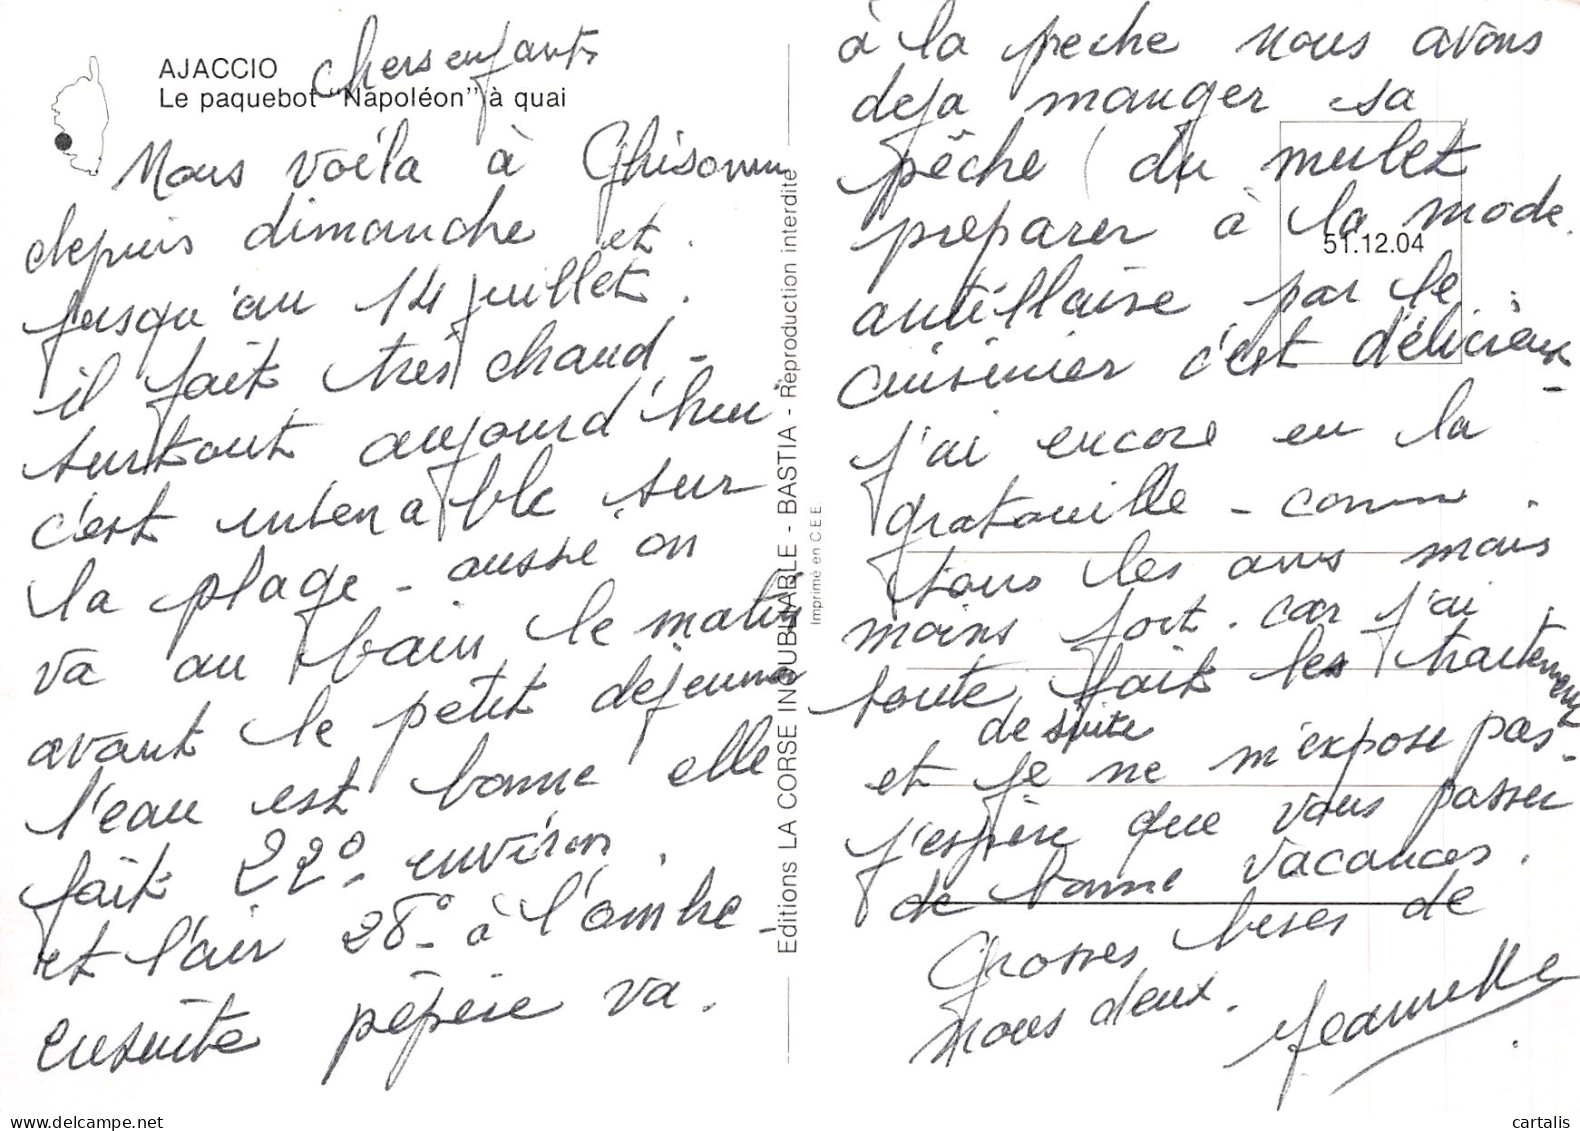 AJACCIO
Le paquebot "Napoléon" à quai
chers enfants
Nous voila à Ghisonnu
depuis dimanche et.
jusqu'au 14 juillet.
il fait très chaud -
surtout aujourd'hui
c'est intenable sur
la plage - aussi on
va au bain le matin
avant le petit dejeuner
l'eau est bonne elle
fait 22° environ.
et l'air 28° - à l'ombre -
ensuite pépère va.
à la peche nous avons
deja manger sa
pêche (du mulet
preparer à la mode.
antillaise par le
cuisinier c'est délicieux -
j'ai encore eu la
gratouille - comme.
tous les ans mais
moins fort. car j'ai
toute fait les traitement
de suite
et je ne m'expose pas -
j'espère que vous passer
de bonne vacances.
Grosses bises de
nous deux.
Jeannette
51.12.04
Editions LA CORSE INOUBLIABLE - BASTIA - Reproduction interdite
Imprimé en C.E.E.
www.delcampe.net
cartalis